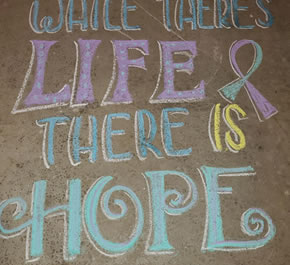 WHILE THERE'S
LIFE
THERE IS
HOPE